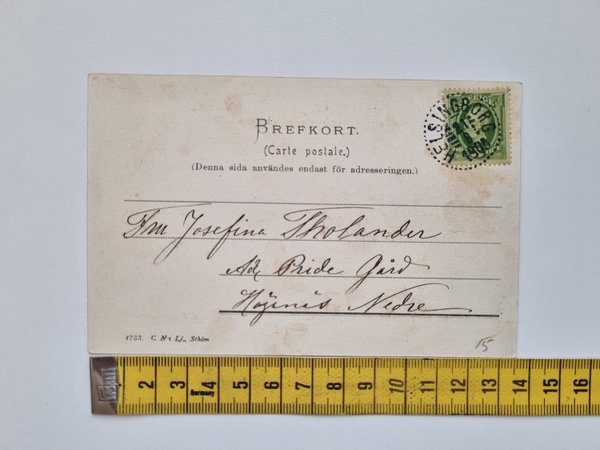 BREFKORT.
(Carte postale.)
(Denna sida användes endast för adresseringen.)
HELSINGBORG
Fru Josefina Tholander
Adr Pride Gård
Höganäs Nedre
1753. C. N:s Lj., Sthlm
15
2 3 4 5 6 7 8 9 10 11 12 13 14 15 16
Germany